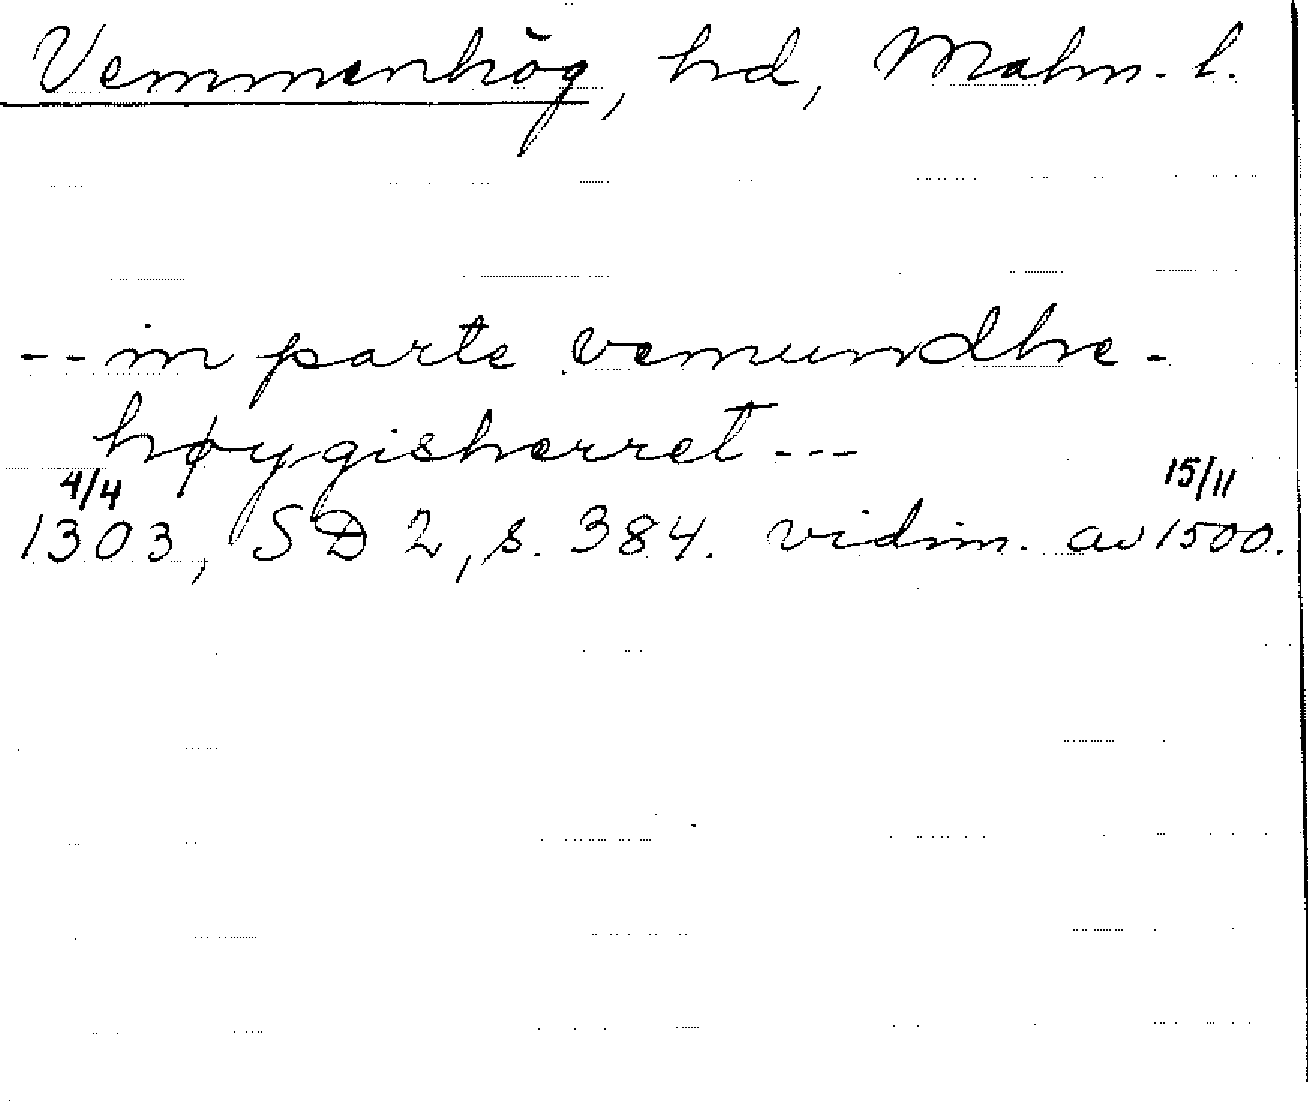 Vemmenhög, hd, Malm. l.
-- in parte vemundhe-
høygisherret ---
4/4 15/11
1303, SD 2, s. 384. vidim. av 1500.